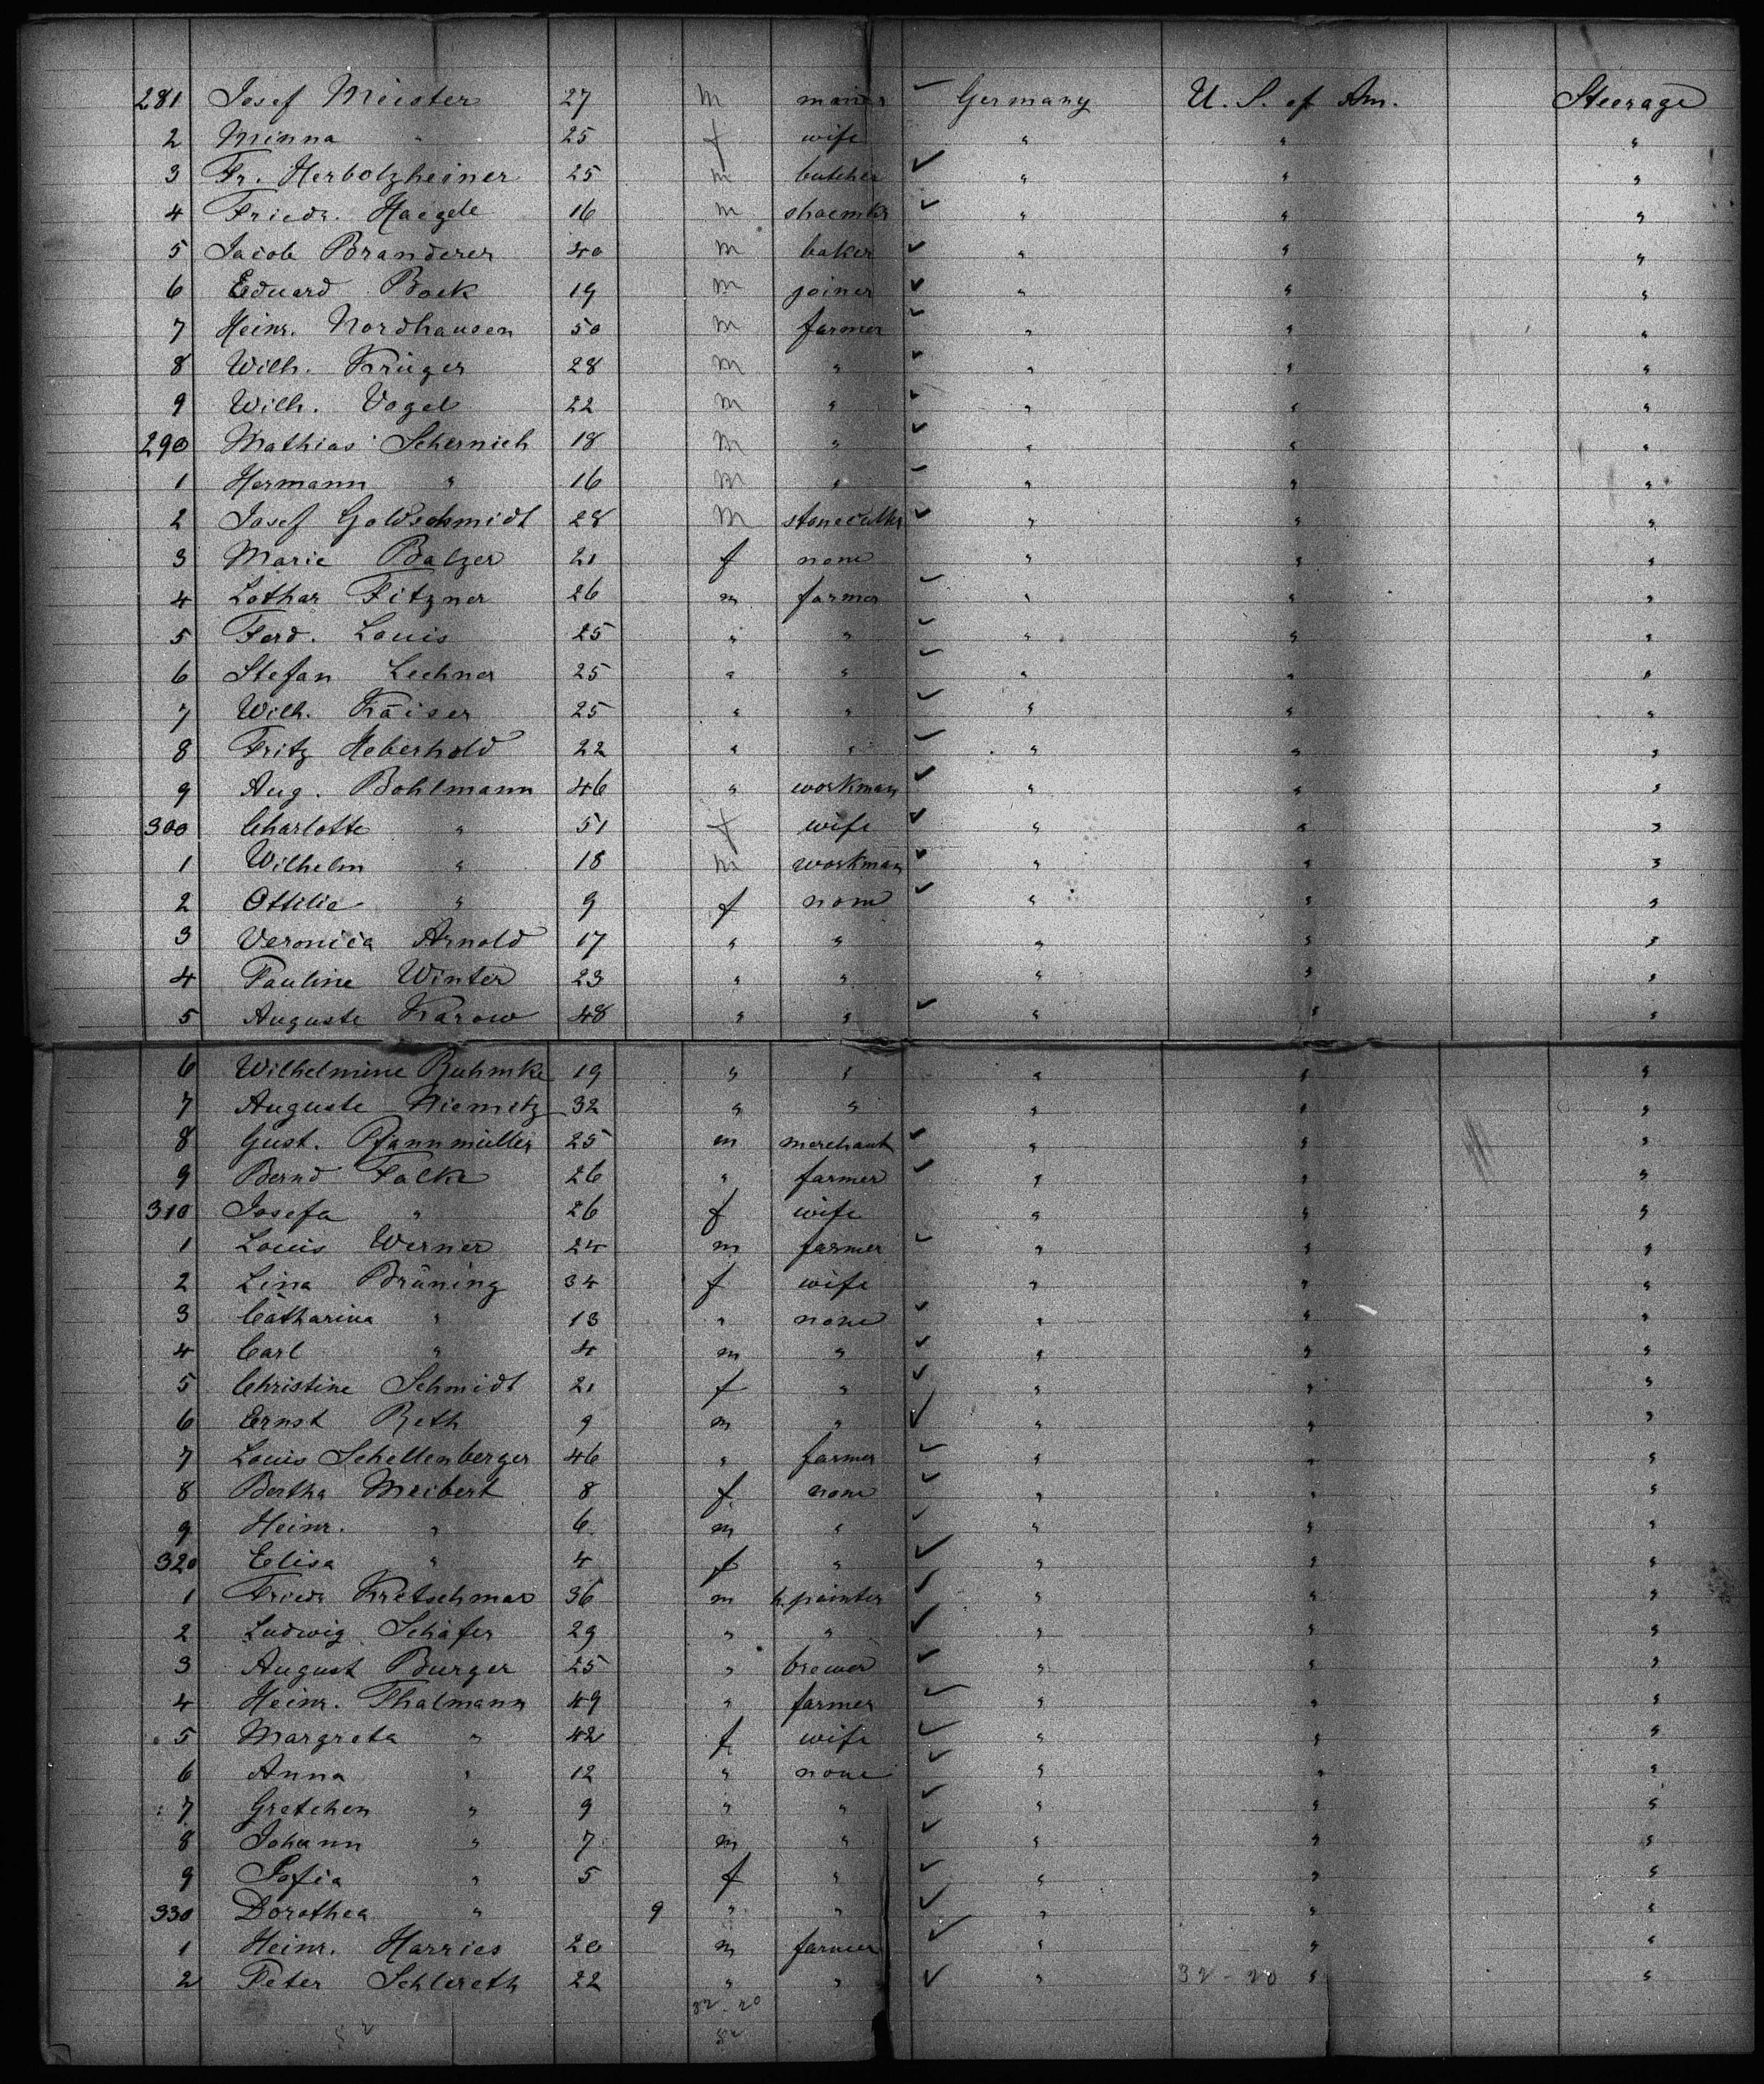 281 Josef Meister 27 m Germany U. S. of Am. Steerage
2 Minna " 25 f wife " " "
3 Fr. Herbolzheiner 25 m butcher " " "
4 Friedr. Haegele 16 m shoemkr " " "
5 Jacob Branderer 40 m baker " " "
6 Eduard Bock 19 m joiner " " "
7 Heinr. Nordhausen 50 m farmer " " "
8 Wilh. Krüger 28 m " " " "
9 Wilh. Vogel 22 m " " " "
290 Mathias Schernich 18 m " " " "
1 Hermann " 16 m " " " "
2 Josef Goldschmidt 28 m stonecutter " " "
3 Marie Balzer 21 f none " " "
4 Lothar Fitzner 26 m farmer " " "
5 Ferd. Louis 25 " " " " "
6 Stefan Lechner 25 " " " " "
7 Wilh. Kaiser 25 " " " " "
8 Fritz Heberhold 22 " " " " "
9 Aug. Bohlmann 46 " workman " " "
300 Charlotte " 51 f wife " " "
1 Wilhelm " 18 m workman " " "
2 Ottilie " 9 f none " " "
3 Veronica Arnold 17 " " " " "
4 Pauline Winter 23 " " " " "
5 Auguste Karow 48 " " " " "
6 Wilhelmine Ruhmke 19 " " " " "
7 Auguste Niemitz 32 " " " " "
8 Gust. Pfannmüller 25 m merchant " " "
9 Bernd Falke 26 " farmer " " "
310 Josefa " 26 f wife " " "
1 Louis Werner 24 m farmer " " "
2 Lina Brüning 34 f wife " " "
3 Catharina " 13 " none " " "
4 Carl " 4 m " " " "
5 Christine Schmidt 21 f " " " "
6 Ernst Reth 9 m " " " "
7 Louis Schellenberger 46 " farmer " " "
8 Bertha Meibert 8 f none " " "
9 Heinr. " 6 m " " " "
320 Elisa " 4 f " " " "
1 Friedr Kretschmar 36 m h. painter " " "
2 Ludwig Schäfer 29 " " " " "
3 August Burger 25 " brewer " " "
4 Heinr. Thalmann 49 " farmer " " "
5 Margreta " 42 f wife " " "
6 Anna " 12 " none " " "
7 Gretchen " 9 " " " " "
8 Johann " 7 m " " " "
9 Sofia " 5 f " " " "
330 Dorothea " 9 " " " " "
1 Heinr. Harries 20 m farmer " " "
2 Peter Schlereth 22 " " " 32-20 " "
32-20